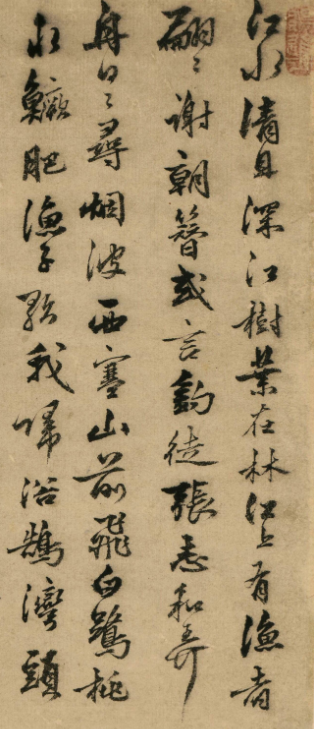 江水清且深江樹葉在林江上有漁者
翩〻謝朝簪或言釣徒張志和弄
舟日〻尋烟波西塞山前飛白鷺桃
水鱖肥漁子歌我歸浴鵠灣頭